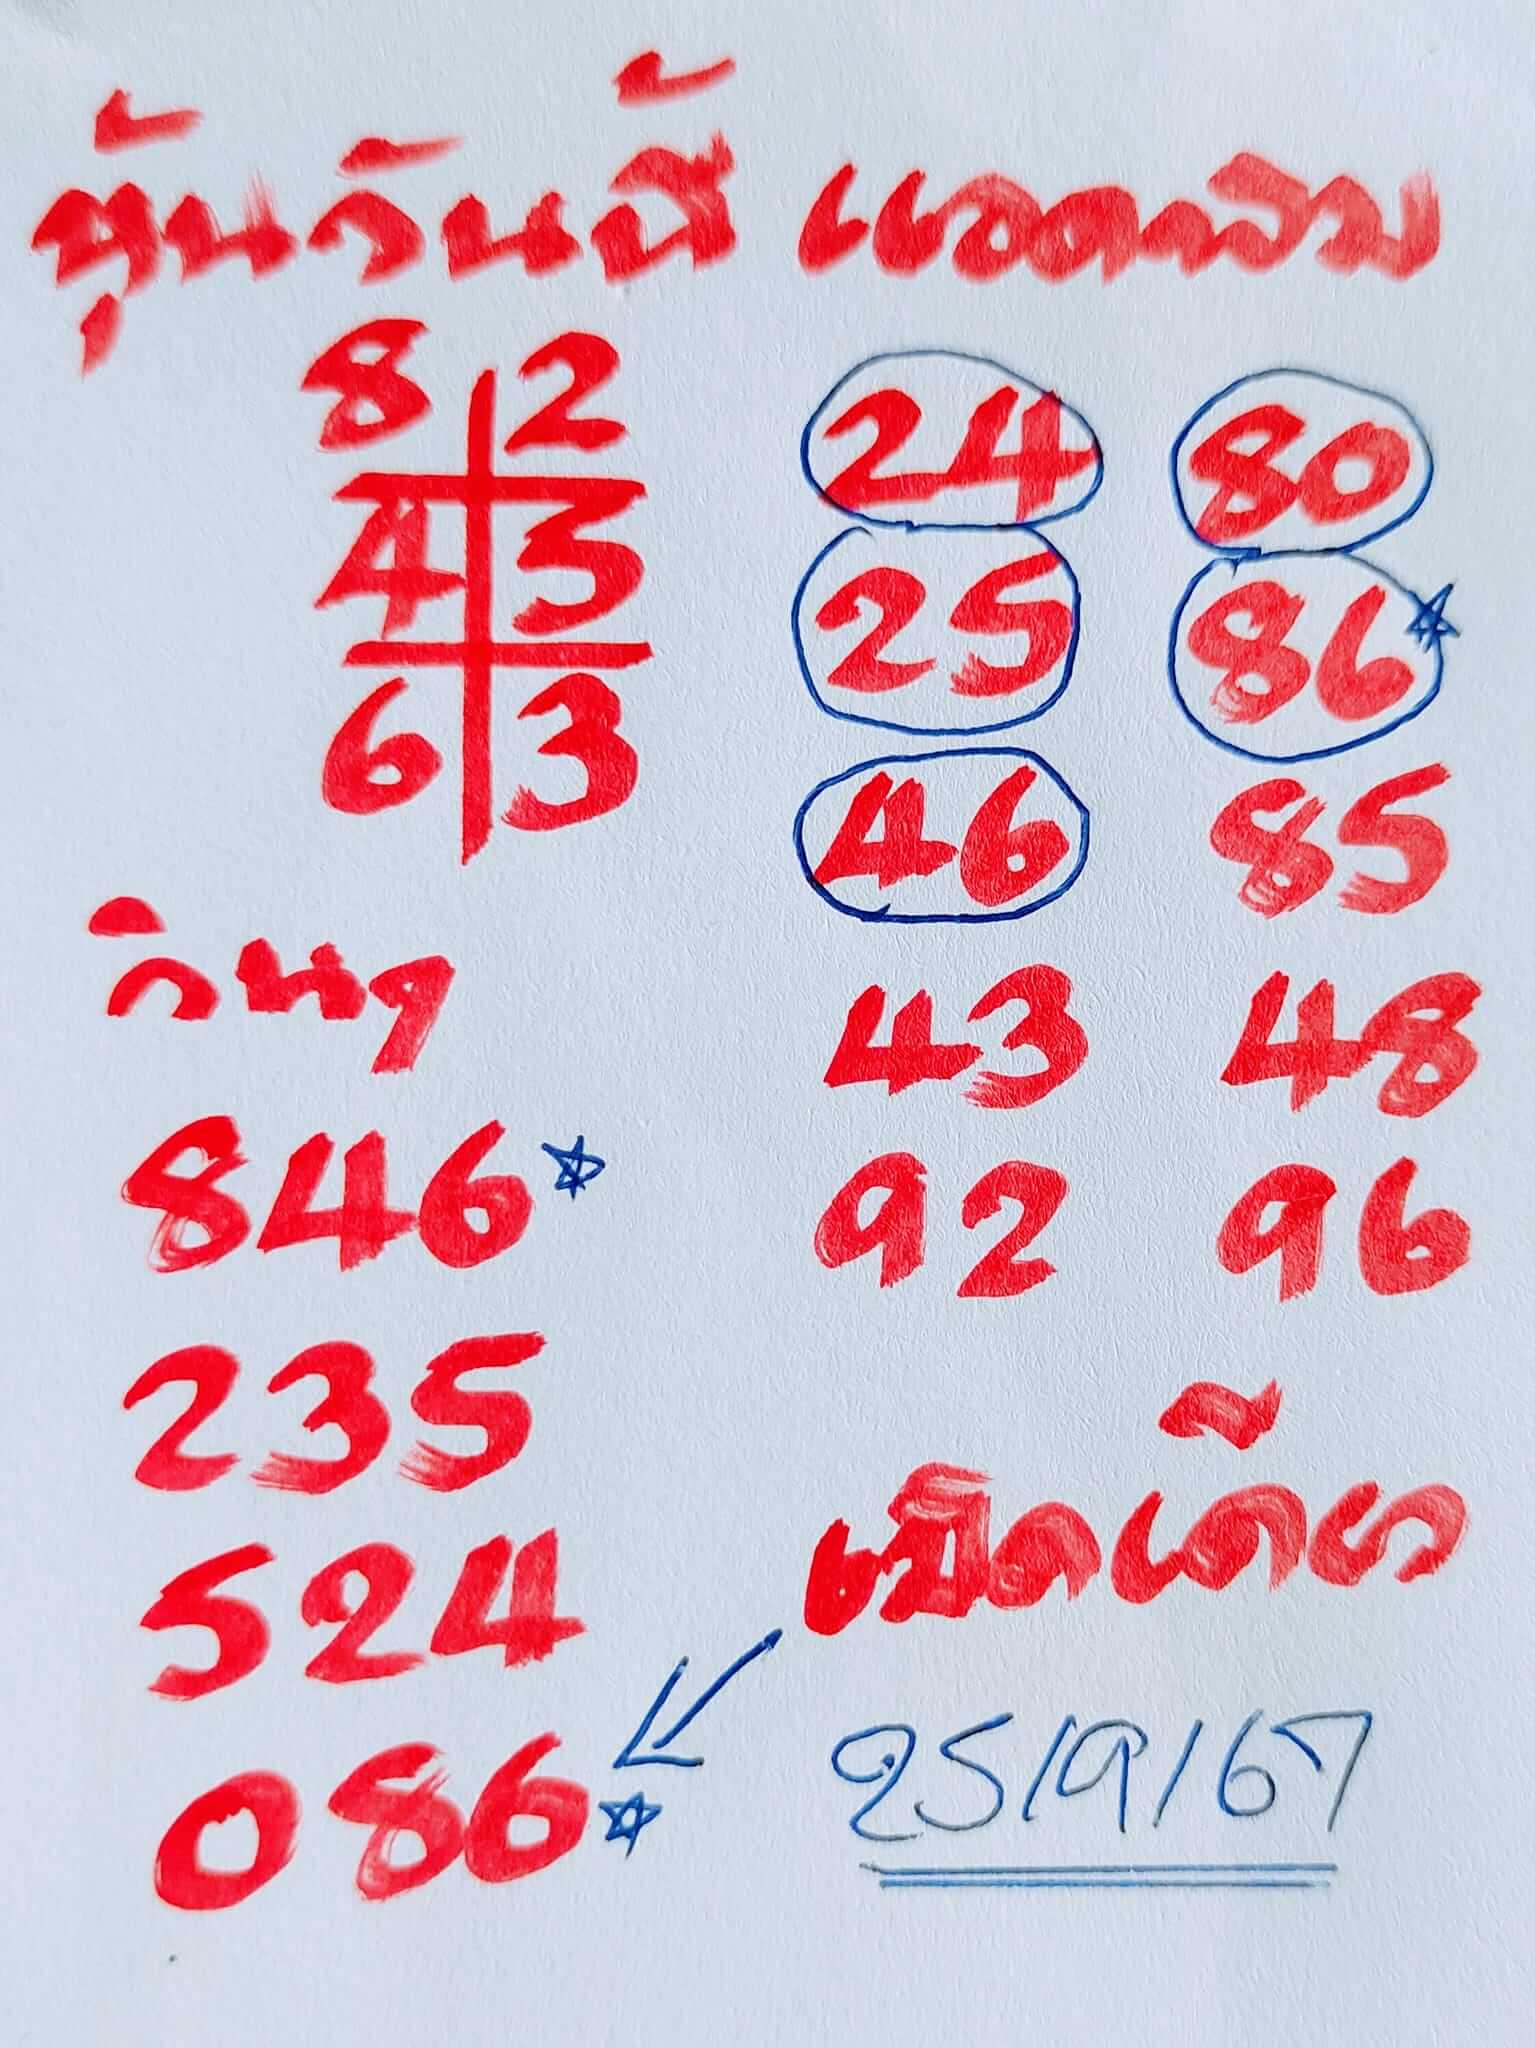 หุ้นวันนี้ แอดกลม
8 2
4 5
6 3
24 80
25 86
46 85
43 48
92 96
วินๆ
846
235
524
086
เม็ดเดียว
25/9/67